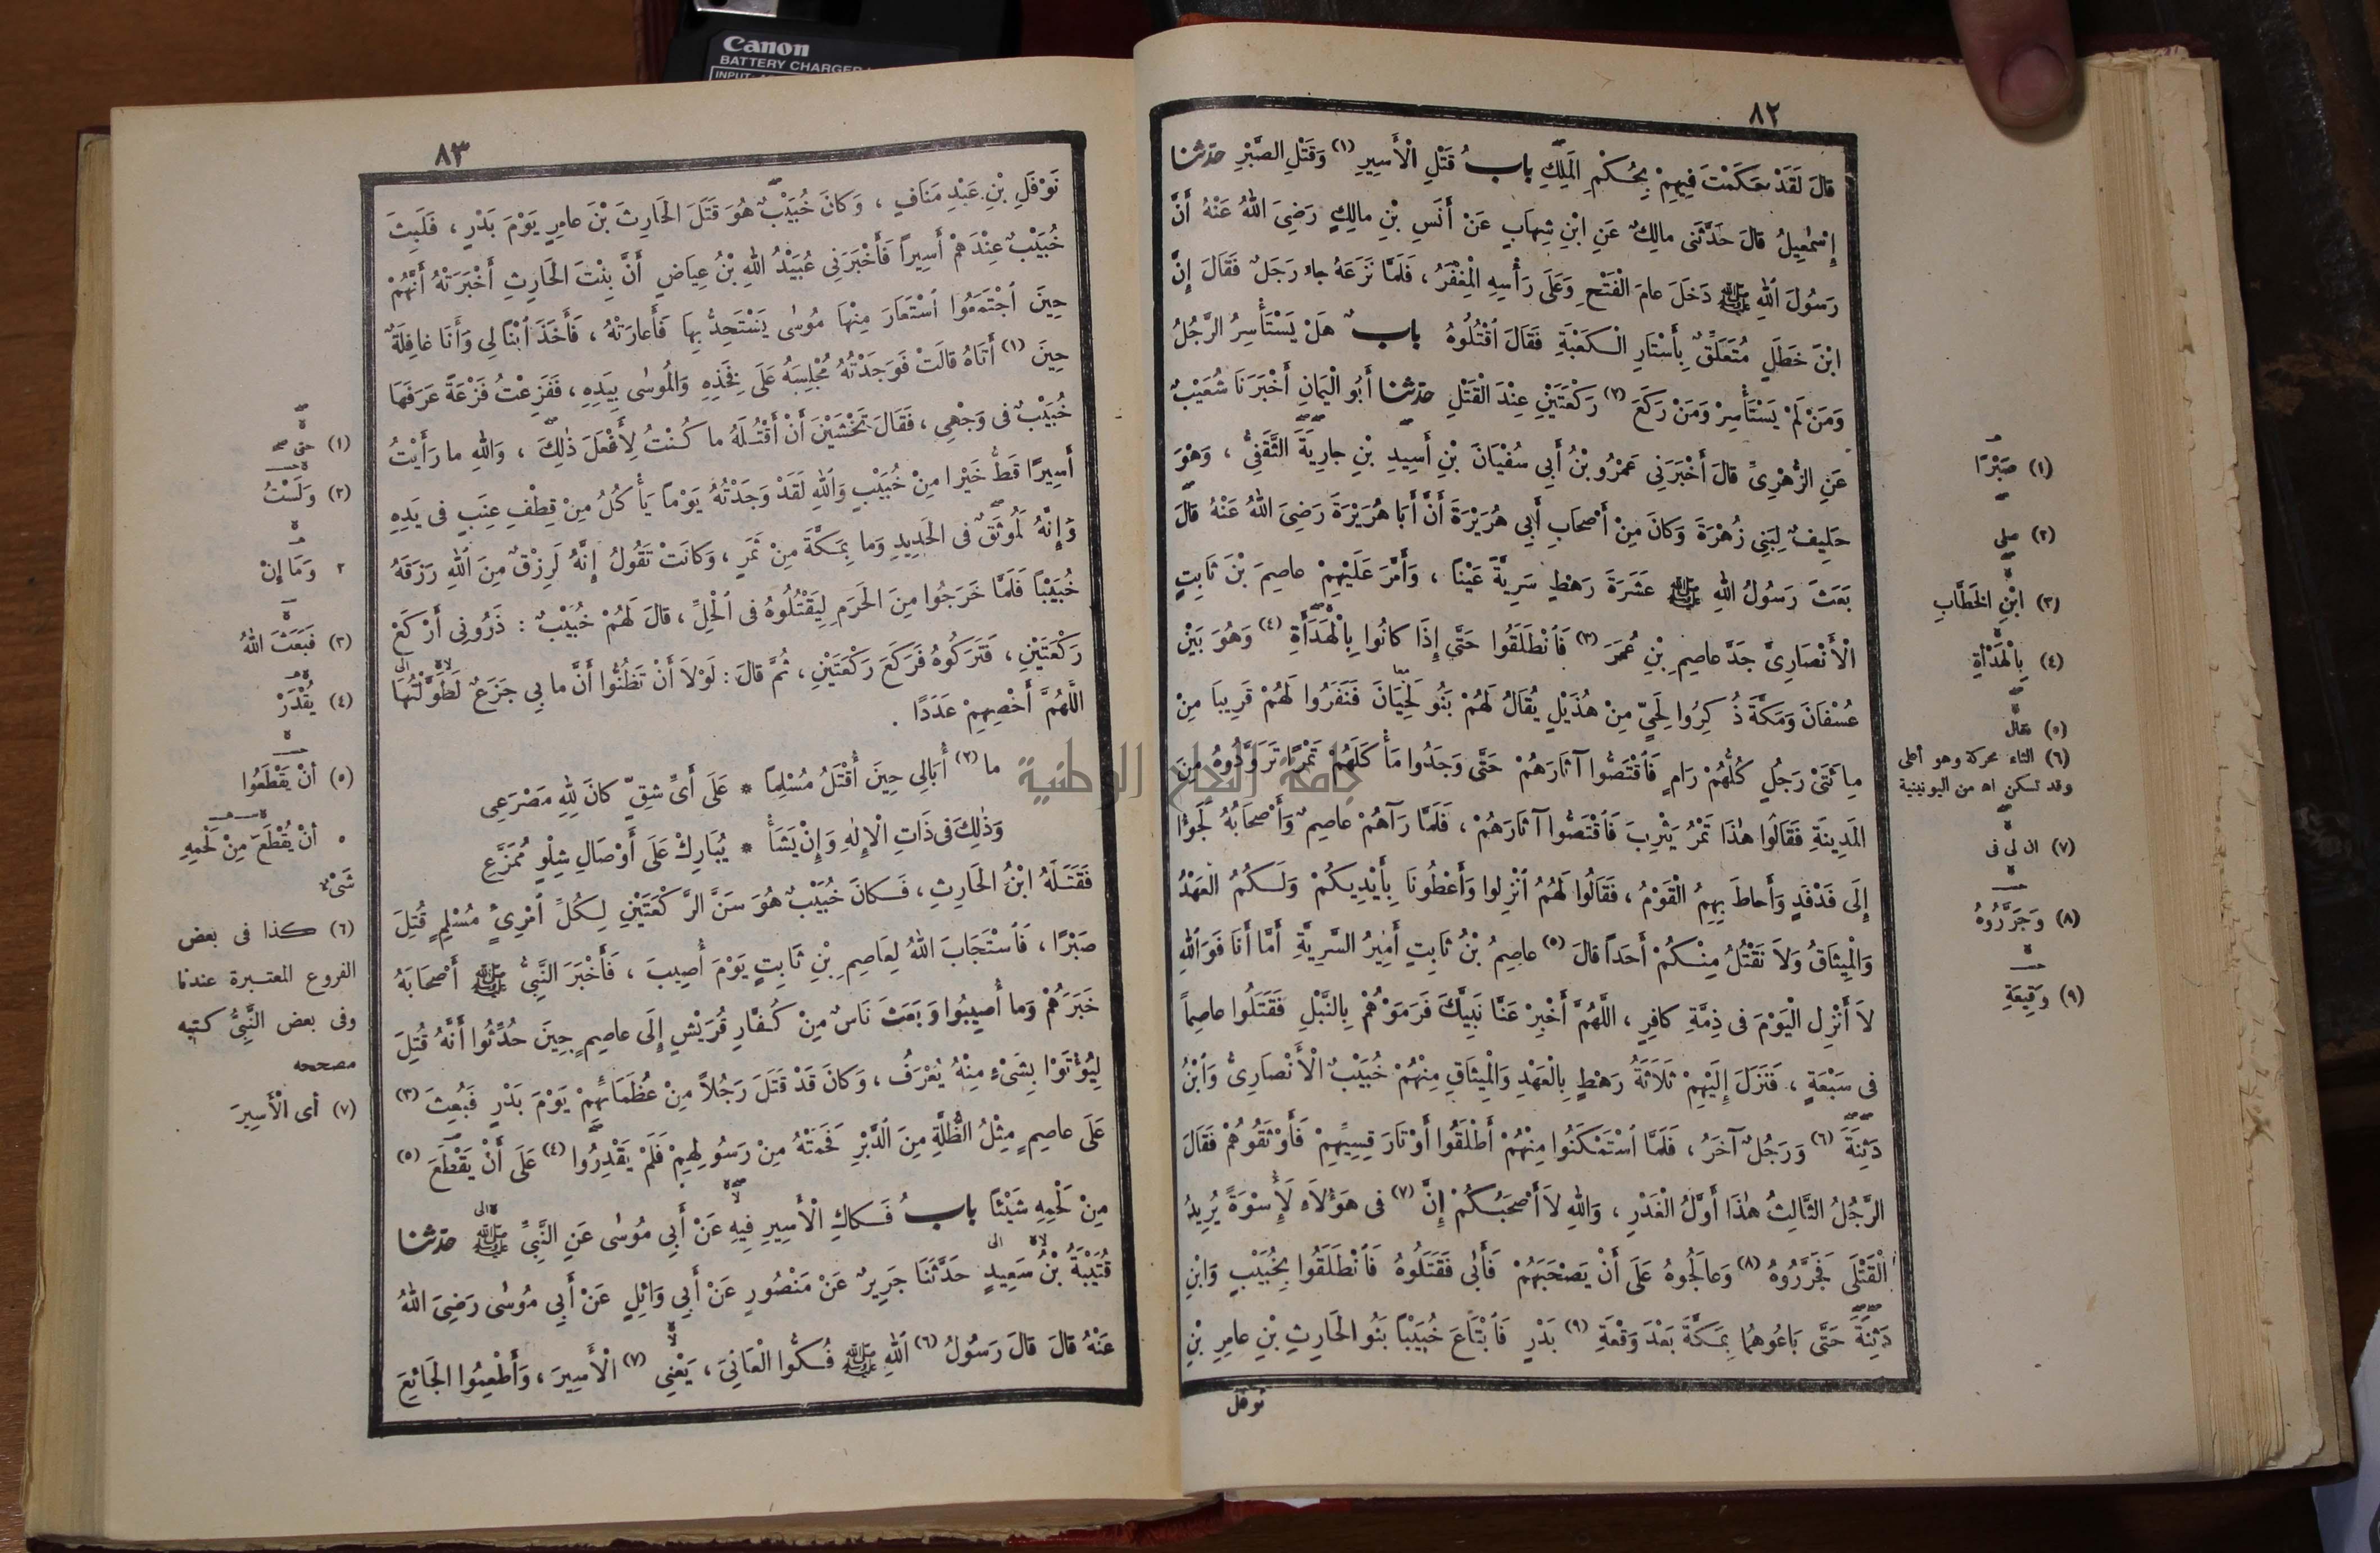 Canon
BATTERY CHARGER
INPUT:
٨٢
قالَ لَقَدْ حَكَمْتَ فِيهِمْ بِحُكْمِ الْمَلِكِ بابُ قَتْلِ الْأَسِيرِ (١) وَقَتْلِ الصَّبْرِ حدثنا
إِسْمٰعِيلُ قالَ حَدَّثَنى مالِكٌ عَنِ ابْنِ شِهَابٍ عَنْ أَنَسِ بْنِ مالِكٍ رَضِىَ اللهُ عَنْهُ أَنَّ
رَسُولَ اللهِ ﷺ دَخَلَ عامَ الْفَتْحِ وَعَلَى رَأْسِهِ الْمِغْفَرُ ، فَلَمَّا نَزَعَهُ جاءَ رَجُلٌ فَقَالَ إِنَّ
ابْنَ خَطَلٍ مُتَعَلِّقٌ بِأَسْتَارِ الْكَعْبَةِ فَقَالَ اقْتُلُوهُ بابٌ هَلْ يَسْتَأْسِرُ الرَّجُلُ
وَمَنْ لَمْ يَسْتَأْسِرْ وَمَنْ رَكَعَ (٢) رَكْعَتَيْنِ عِنْدَ الْقَتْلِ حدثنا أَبُو الْيَمَانِ أَخْبَرَنَا شُعَيْبٌ
عَنِ الزُّهْرِىِّ قالَ أَخْبَرَنِى عَمْرُو بْنُ أَبِى سُفْيَانَ بْنِ أَسِيدِ بْنِ جارِيَةَ الثَّقَفِىُّ ، وَهْوَ
حَلِيفٌ لِبَنِى زُهْرَةَ وَكانَ مِنْ أَصْحَابِ أَبِى هُرَيْرَةَ أَنَّ أَبَا هُرَيْرَةَ رَضِىَ اللهُ عَنْهُ قالَ
بَعَثَ رَسُولُ اللهِ ﷺ عَشَرَةَ رَهْطٍ سَرِيَّةً عَيْنًا ، وَأَمَّرَ عَلَيْهِمْ عاصِمَ بْنَ ثَابِتٍ
الْأَنْصَارِىَّ جَدَّ عاصِمِ بْنِ عُمَرَ (٣) فَانْطَلَقُوا حَتَّى إِذَا كانُوا بِالْهَدَأَةِ (٤) وَهُوَ بَيْنَ
عُسْفَانَ وَمَكَّةَ ذُكِرُوا لِحَىٍّ مِنْ هُذَيْلٍ يُقَالُ لَهُمْ بَنُو لِحْيَانَ فَنَفَرُوا لَهُمْ قَرِيبًا مِنْ
مِائَتَىْ رَجُلٍ كُلُّهُمْ رَامٍ فَاقْتَصُّوا آثَارَهُمْ حَتَّى وَجَدُوا مَأْكَلَهُمْ تَمْرًا تَزَوَّدُوهُ مِنَ
المَدِينَةِ فَقَالُوا هٰذَا تَمْرُ يَثْرِبَ فَاقْتَصُّوا آثَارَهُمْ ، فَلَمَّا رَآهُمْ عاصِمٌ وَأَصْحَابُهُ لَجَؤُا
إِلَى فَدْفَدٍ وَأَحاطَ بِهِمُ الْقَوْمُ ، فَقَالُوا لَهُمُ انْزِلُوا وَأَعْطُونَا بِأَيْدِيكُمْ وَلَكُمُ الْعَهْدُ
وَالْمِيثَاقُ وَلاَ نَقْتُلُ مِنْكُمْ أَحَدًا قالَ (٥) عاصِمُ بْنُ ثَابِتٍ أَمِيرُ السَّرِيَّةِ أَمَّا أَنَا فَوَاللهِ
لاَ أَنْزِلُ الْيَوْمَ فى ذِمَّةِ كافِرٍ ، اللَّهُمَّ أَخْبِرْ عَنَّا نَبِيَّكَ فَرَمَوْهُمْ بِالنَّبْلِ فَقَتَلُوا عاصِمًا
فى سَبْعَةٍ ، فَنَزَلَ إِلَيْهِمْ ثَلاَثَةُ رَهْطٍ بِالْعَهْدِ وَالْمِيثَاقِ مِنْهُمْ خُبَيْبٌ الْأَنْصَارِىُّ وَابْنُ
دَثِنَةَ (٦) وَرَجُلٌ آخَرُ ، فَلَمَّا اسْتَمْكَنُوا مِنْهُمْ أَطْلَقُوا أَوْتَارَ قِسِيِّهِمْ فَأَوْثَقُوهُمْ فَقَالَ
الرَّجُلُ الثَّالِثُ هٰذَا أَوَّلُ الْغَدْرِ ، وَاللهِ لاَ أَصْحَبُكُمْ إِنَّ (٧) فى هَؤُلاَءِ لَأُسْوَةً يُرِيدُ
الْقَتْلَى فَجَرَّرُوهُ (٨) وَعالَجُوهُ عَلَى أَنْ يَصْحَبَهُمْ فَأَبٰى فَقَتَلُوهُ فَانْطَلَقُوا بِخُبَيْبٍ وَابْنِ
دَثِنَةَ حَتَّى بَاعُوهُمَا بِمَكَّةَ بَعْدَ وَقْعَةِ (٩) بَدْرٍ فَابْتَاعَ خُبَيْبًا بَنُو الحَارِثِ بْنِ عامِرِ بْنِ
نَوْفَل
(١) صَبْرًا
(٢) صلى
(٣) ابْنِ الخَطَّابِ
(٤) بِالْهَدْأَةِ
(٥) فقال
(٦) الثاء محركة وهو أعلى
وقد تسكن اه من اليونينية
(٧) ان لى فى
(٨) وَجَرَّرُوهُ
(٩) وَقِيعَةِ
٨٣
نَوْفَلِ بْنِ عَبْدِ مَنَافٍ ، وَكانَ خُبَيْبٌ هُوَ قَتَلَ الحَارِثَ بْنَ عامِرٍ يَوْمَ بَدْرٍ ، فَلَبِثَ
خُبَيْبٌ عِنْدَهُمْ أَسِيرًا فَأَخْبَرَنِى عُبَيْدُ اللهِ بْنُ عِيَاضٍ أَنَّ بِنْتَ الحَارِثِ أَخْبَرَتْهُ أَنَّهُمْ
حِينَ اجْتَمَعُوا اسْتَعَارَ مِنْهَا مُوسٰى يَسْتَحِدُّ بِهَا فَأَعارَتْهُ ، فَأَخَذَ ابْنًا لِى وَأَنَا غافِلَةٌ
حِينَ (١) أَتَاهُ قالَتْ فَوَجَدْتُهُ مُجْلِسَهُ عَلَى فَخِذِهِ وَالْمُوسٰى بِيَدِهِ ، فَفَزِعْتُ فَزْعَةً عَرَفَهَا
خُبَيْبٌ فى وَجْهِى ، فَقَالَ تَخْشَيْنَ أَنْ أَقْتُلَهُ ما كُنْتُ لِأَفْعَلَ ذٰلِكَ ، وَاللهِ ما رَأَيْتُ
أَسِيرًا قَطُّ خَيْرًا مِنْ خُبَيْبٍ وَاللهِ لَقَدْ وَجَدْتُهُ يَوْمًا يَأْكُلُ مِنْ قِطْفِ عِنَبٍ فى يَدِهِ
وَإِنَّهُ لَمُوثَقٌ فى الحَدِيدِ وَما بِمَكَّةَ مِنْ ثَمَرٍ ، وَكانَتْ تَقُولُ إِنَّهُ لَرِزْقٌ مِنَ اللهِ رَزَقَهُ
خُبَيْبًا فَلَمَّا خَرَجُوا مِنَ الحَرَمِ لِيَقْتُلُوهُ فى الْحِلِّ ، قالَ لَهُمْ خُبَيْبٌ : ذَرُونِى أَرْكَعْ
رَكْعَتَيْنِ ، فَتَرَكُوهُ فَرَكَعَ رَكْعَتَيْنِ ، ثُمَّ قالَ : لَوْلاَ أَنْ تَظُنُّوا أَنَّ ما بِى جَزَعٌ لَطَوَّلْتُهَا
اللَّهُمَّ أَحْصِهِمْ عَدَدًا .
ما (٢) أُبَالِى حِينَ أُقْتَلُ مُسْلِمًا * عَلَى أَىِّ شِقٍّ كانَ لِلهِ مَصْرَعِى
وَذٰلِكَ فى ذَاتِ الْإِلٰهِ وَإِنْ يَشَأْ * يُبَارِكْ عَلَى أَوْصَالِ شِلْوٍ مُمَزَّعِ
فَقَتَلَهُ ابْنُ الحَارِثِ ، فَكانَ خُبَيْبٌ هُوَ سَنَّ الرَّكْعَتَيْنِ لِكُلِّ امْرِئٍ مُسْلِمٍ قُتِلَ
صَبْرًا ، فَاسْتَجَابَ اللهُ لِعَاصِمِ بْنِ ثَابِتٍ يَوْمَ أُصِيبَ ، فَأَخْبَرَ النَّبِىُّ ﷺ أَصْحَابَهُ
خَبَرَهُمْ وَما أُصِيبُوا وَبَعَثَ نَاسٌ مِنْ كُفَّارِ قُرَيْشٍ إِلَى عاصِمٍ حِينَ حُدِّثُوا أَنَّهُ قُتِلَ
لِيُؤْتَوْا بِشَىْءٍ مِنْهُ يُعْرَفُ ، وَكانَ قَدْ قَتَلَ رَجُلاً مِنْ عُظَمَائِهِمْ يَوْمَ بَدْرٍ فَبُعِثَ (٣)
عَلَى عاصِمٍ مِثْلُ الظُّلَّةِ مِنَ الدَّبْرِ فَحَمَتْهُ مِنْ رَسُولِهِمْ فَلَمْ يَقْدِرُوا (٤) عَلَى أَنْ يَقْطَعَ (٥)
مِنْ لَحْمِهِ شَيْئًا بابُ فَكاكِ الْأَسِيرِ فِيهِ عَنْ أَبِى مُوسٰى عَنِ النَّبِىِّ ﷺ حدثنا
قُتَيْبَةُ بْنُ سَعِيدٍ حَدَّثَنَا جَرِيرٌ عَنْ مَنْصُورٍ عَنْ أَبِى وَائِلٍ عَنْ أَبِى مُوسٰى رَضِىَ اللهُ
عَنْهُ قالَ قالَ رَسُولُ (٦) اللهِ ﷺ فُكُّوا الْعَانِىَ ، يَعْنِى (٧) الْأَسِيرَ ، وَأَطْعِمُوا الجَائِعَ
(١) حتى
(٢) وَلَسْتُ
٢ وَمَا إِنْ
(٣) فَبَعَثَ اللهُ
(٤) يُقْدَرْ
(٥) أَنْ يَقْطَعُوا
٥ أَنْ يُقْطَعَ مِنْ لَحْمِهِ
شَىْءٌ
(٦) كذا فى بعض
الفروع المعتبرة عندنا
وفى بعض النَّبِىُّ كتبه
مصححه
(٧) أى الْأَسِيرَ
جامعة النجاح الوطنية